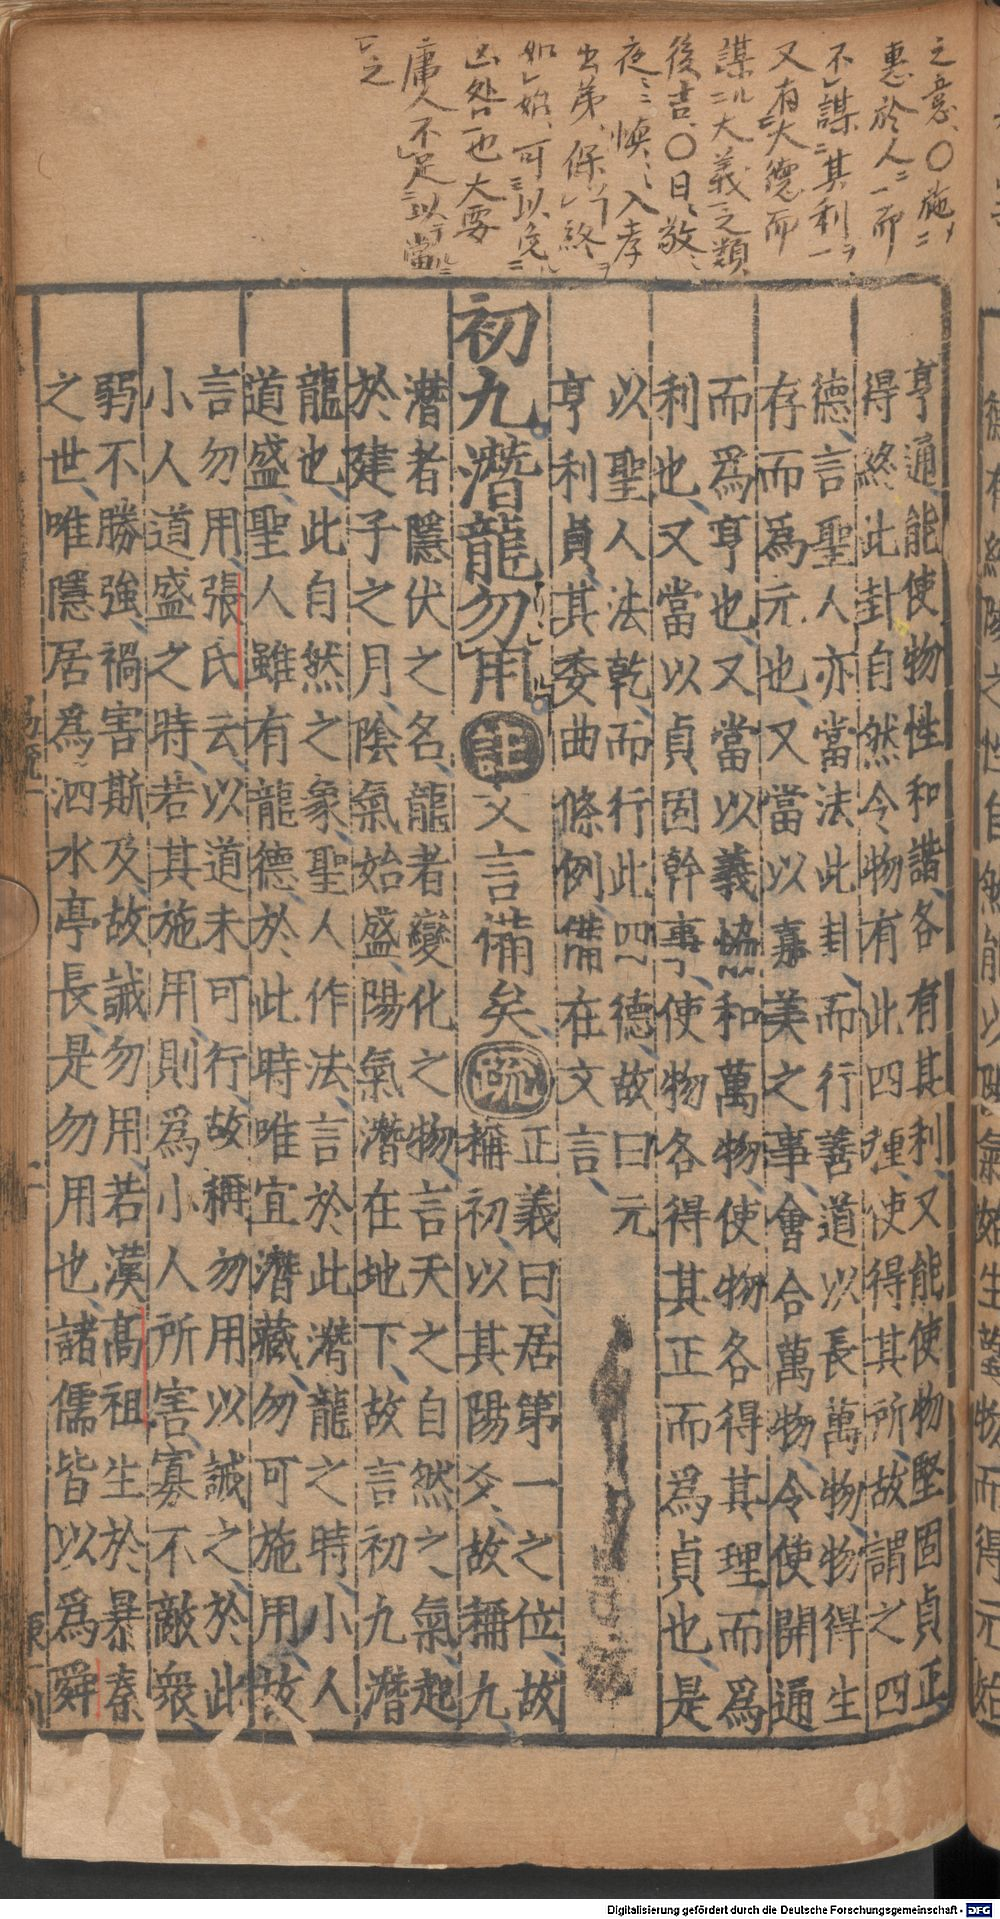 之意、〇施ソニ
惠於人ニ一而
不レ謀ニ其利一ヲ
又有ニ大德而
謀ルニ大義一之類
後、吉、〇日、敬
夜、惕、入孝
出弟、保レ今終ヲ
如レ始、可ニ以免ニ
凶咎一也大要
庸人不レ足ニ以當ルニ
一之
亨通、能使物性和諧、各有其利、又能使物堅固貞正
得終、此卦自然令物有此四種、使得其所、故謂之四
德、言聖人亦當法此卦、而行善道以長萬物、物得生
存而爲元也、又當以嘉美之事、會合萬物、令使開通
而爲亨也、又當以義協和萬物、使物各得其理而爲
利也、又當以貞固幹事、使物各得其正而爲貞也、是
以聖人法乾、而行此四德故曰元
亨利貞、其委曲條例備在文言、
初九潛龍勿用 註 文言備矣、疏 正義曰、居第一之位、故
稱初、以其陽爻、故稱九、
潛者隱伏之名、龍者變化之物、言天之自然之氣、起
於建子之月、陰氣始盛、陽氣潛在地下、故言初九潛
龍也、此自然之象、聖人作法、言於此潛龍之時、小人
道盛、聖人雖有龍德、於此時唯宜潛藏、勿可施用、故
言勿用、張氏云、以道未可行、故稱勿用以誡之、於此
小人道盛之時、若其施用、則爲小人所害、寡不敵衆、
弱不勝強、禍害斯及、故誡勿用、若漢高祖生於暴秦
之世、唯隱居爲泗水亭長、是勿用也、諸儒皆以爲舜
Digitalisierung gefördert durch die Deutsche Forschungsgemeinschaft - DFG